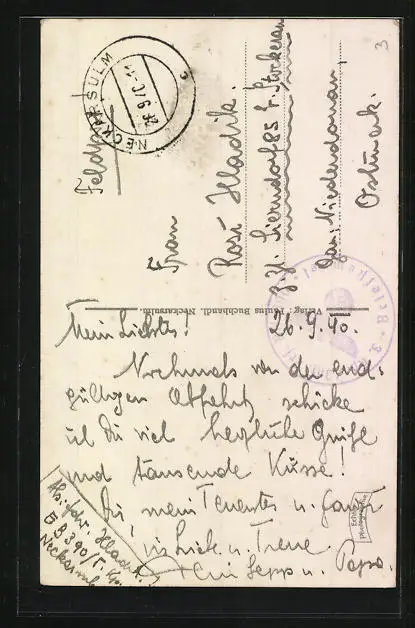 3
NECKARSULM
Feldpost
Frau
Rosi Hladik.
z. Zt. Sierndorf 85 b. Stockerau
Gau: Niederdonau,
Ostmark.
Verlag: Paulus Buchhandl. Neckarsulm.
Mein Liebstes! 26.9.40.
Nochmals vor der end-
gültigen Abfahrt schicke
ich Dir viel herzliche Grüße
und tausende Küsse!
Dir, mein Teuerstes u. Hansi
in Liebe u. Treue
Dein Sepp u. Papa.
Hladik
Neckarsulm
Echte
Photographie